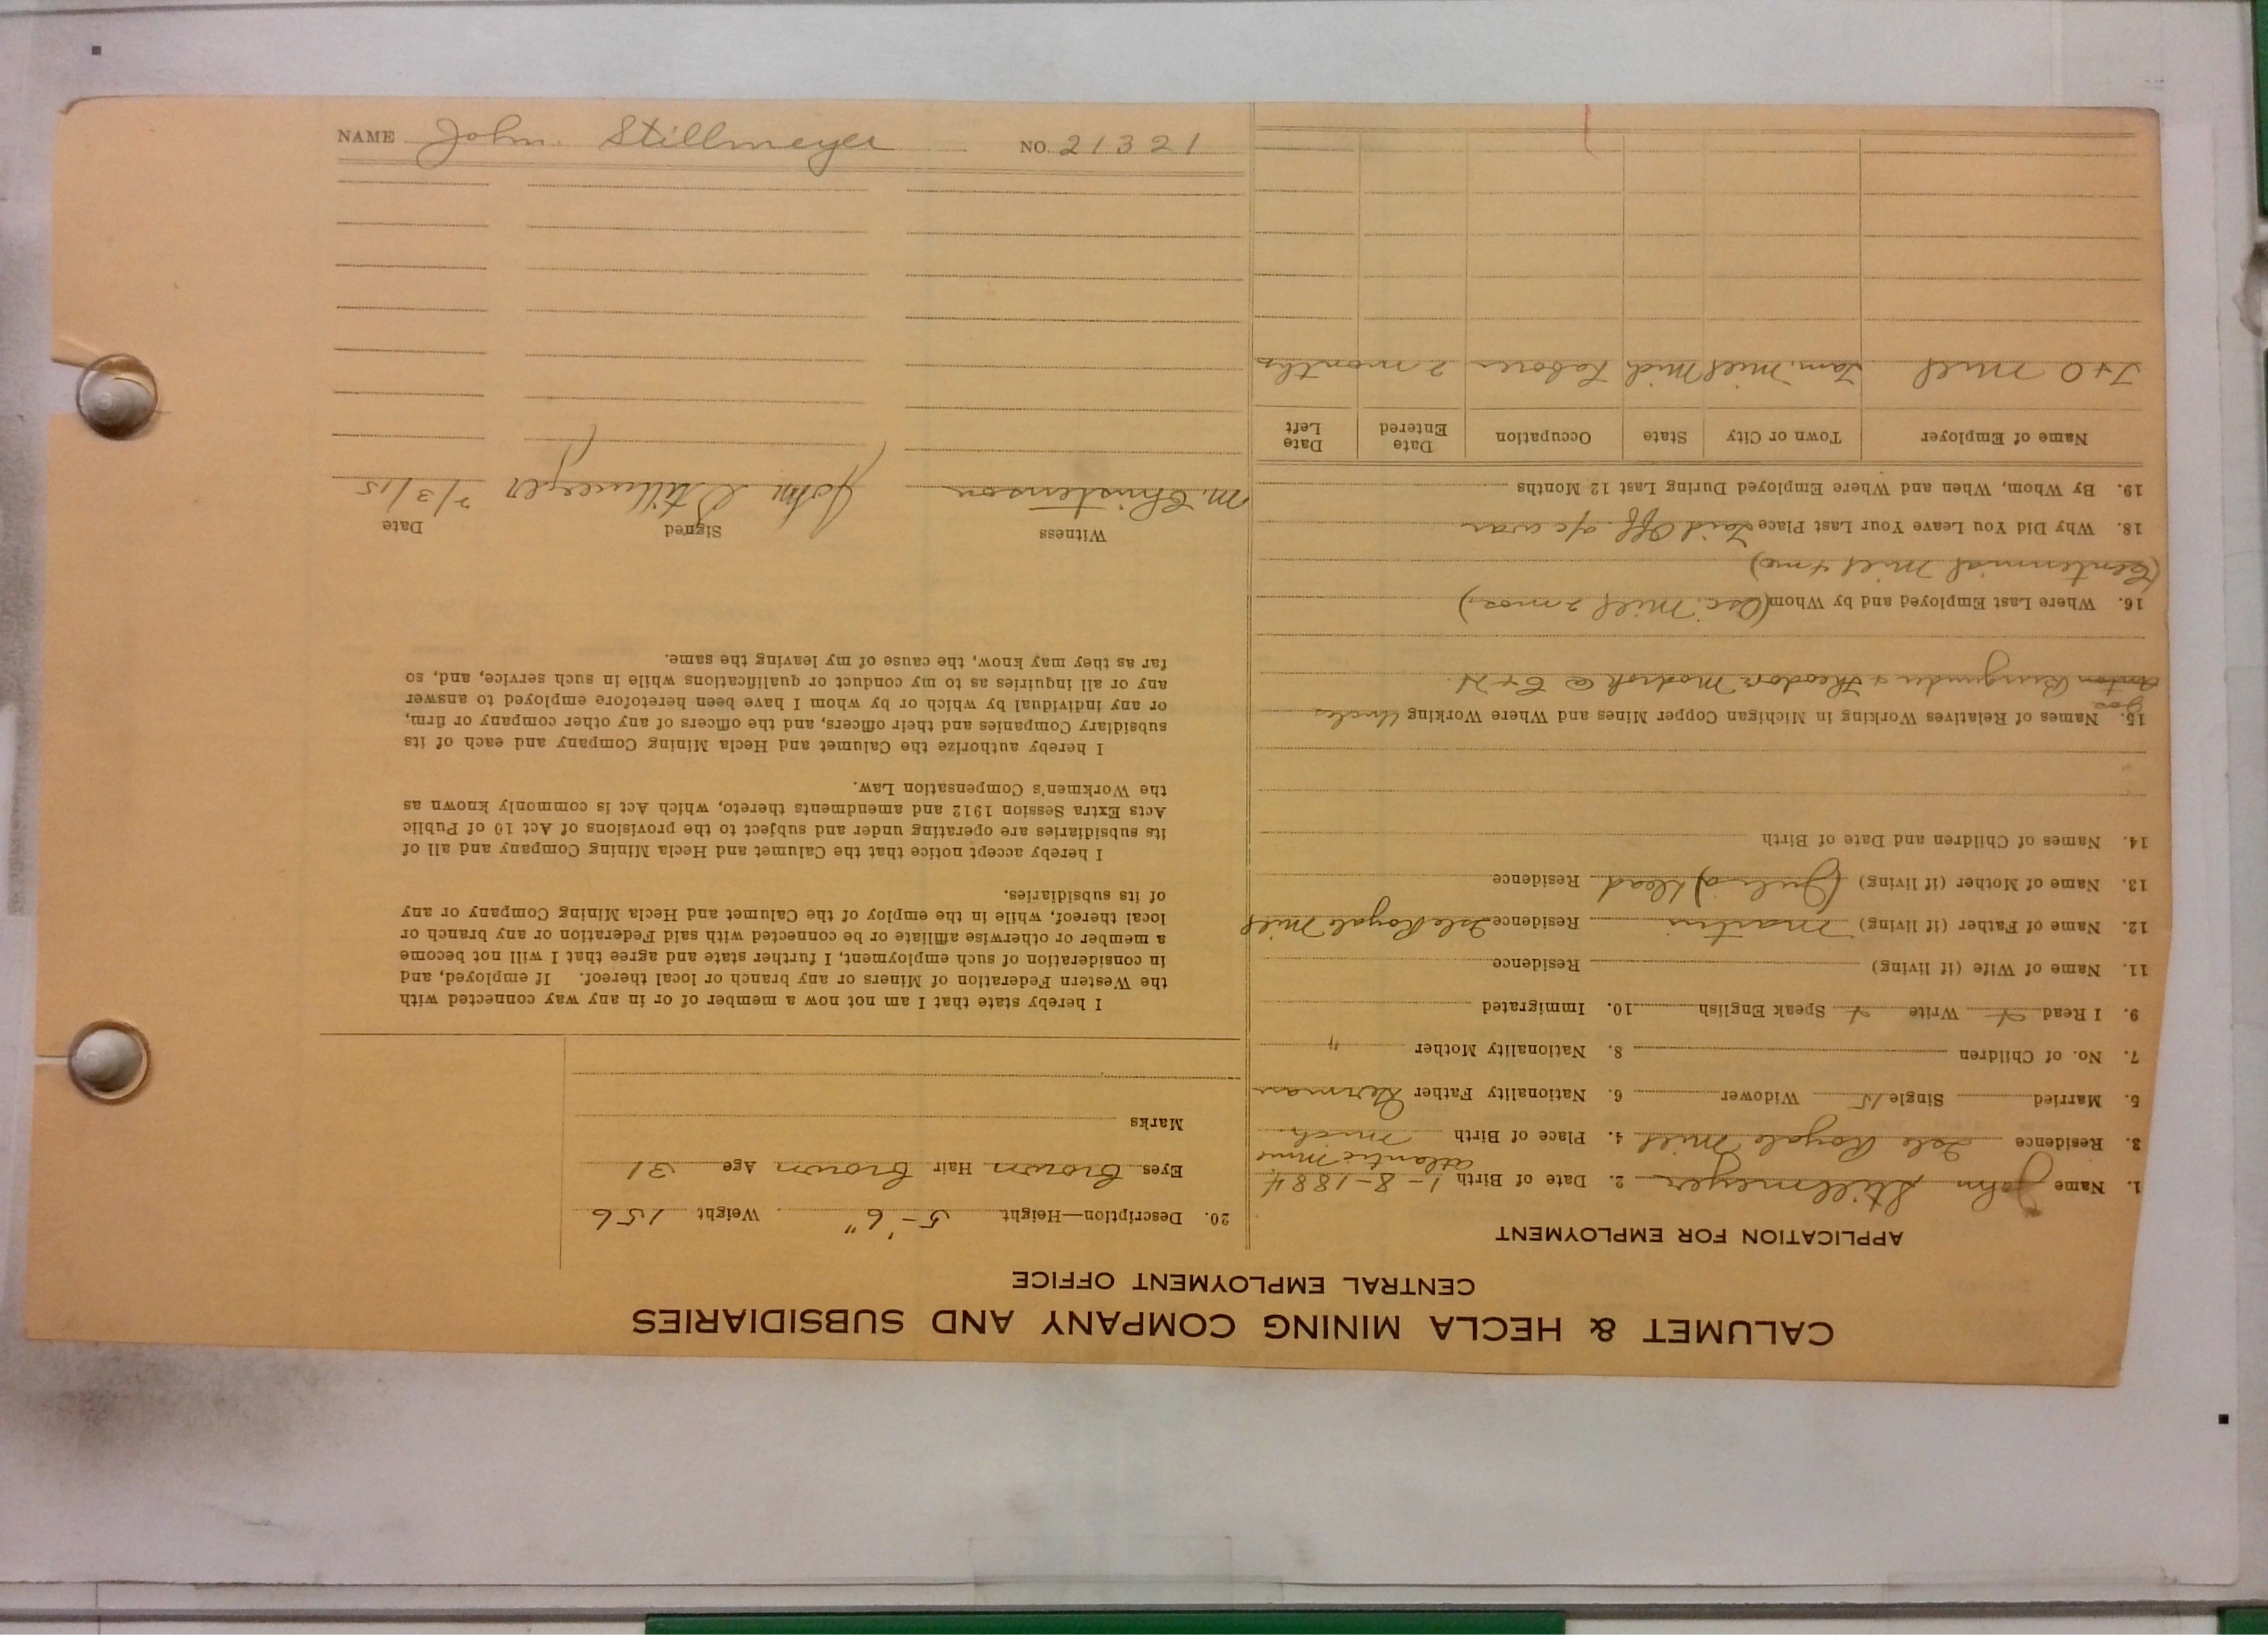 CALUMET & HECLA MINING COMPANY AND SUBSIDIARIES
CENTRAL EMPLOYMENT OFFICE
APPLICATION FOR EMPLOYMENT
1. Name John Stillmeyer 2. Date of Birth 1-8-1884
Atlantic Mine
3. Residence Isle Royale Mill 4. Place of Birth Mich.
5. Married Single Widower 6. Nationality Father German
7. No. of Children 8. Nationality Mother "
9. I Read Write Speak English 10. Immigrated
11. Name of Wife (if living) Residence
12. Name of Father (if living) Martin Residence Isle Royale Mill
13. Name of Mother (if living) (Julia) dead Residence
14. Names of Children and Date of Birth
15. Names of Relatives Working in Michigan Copper Mines and Where Working Uncles
Joe
Anton & Theodore @ C & H.
16. Where Last Employed and by Whom (Osc. Mill 2 mos.)
(Centennial Mill 4 mo)
18. Why Did You Leave Your Last Place Laid Off a/c war
19. By Whom, When and Where Employed During Last 12 Months
Name of Employer Town or City State Occupation Date Entered Date Left
Mill Tam. Mill Mich Laborer 2 months
20. Description—Height 5'-6" Weight 156
Eyes Brown Hair Brown Age 31
Marks
I hereby state that I am not now a member of or in any way connected with
the Western Federation of Miners or any branch or local thereof. If employed, and
in consideration of such employment, I further state and agree that I will not become
a member or otherwise affiliate or be connected with said Federation or any branch or
local thereof, while in the employ of the Calumet and Hecla Mining Company or any
of its subsidiaries.
I hereby accept notice that the Calumet and Hecla Mining Company and all of
its subsidiaries are operating under and subject to the provisions of Act 10 of Public
Acts Extra Session 1912 and amendments thereto, which Act is commonly known as
the Workmen's Compensation Law.
I hereby authorize the Calumet and Hecla Mining Company and each of its
subsidiary Companies and their officers, and the officers of any other company or firm,
or any individual by which or by whom I have been heretofore employed to answer
any or all inquiries as to my conduct or qualifications while in such service, and, so
far as they may know, the cause of my leaving the same.
Witness Signed Date
M. Christenson John Stillmeyer 7/3/15
NAME John Stillmeyer NO. 21321